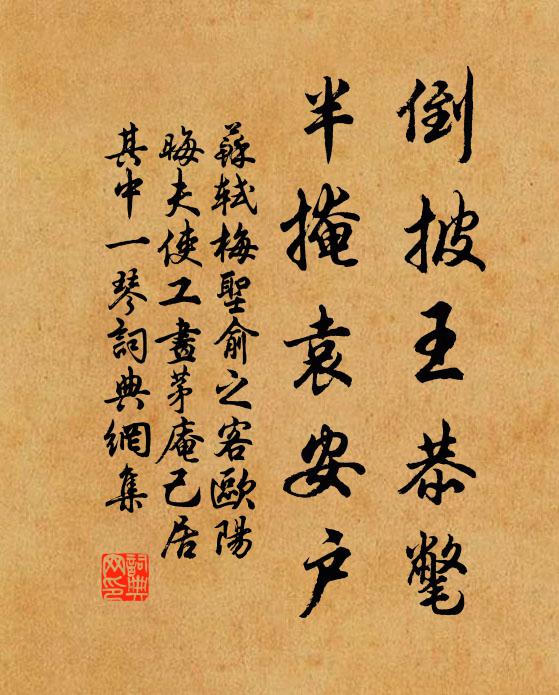 倒披王恭氅
半掩袁安户
蘇軾梅聖俞之客歐陽
晦夫使工畫茅庵己居
其中一琴詞典網集
詞典网印